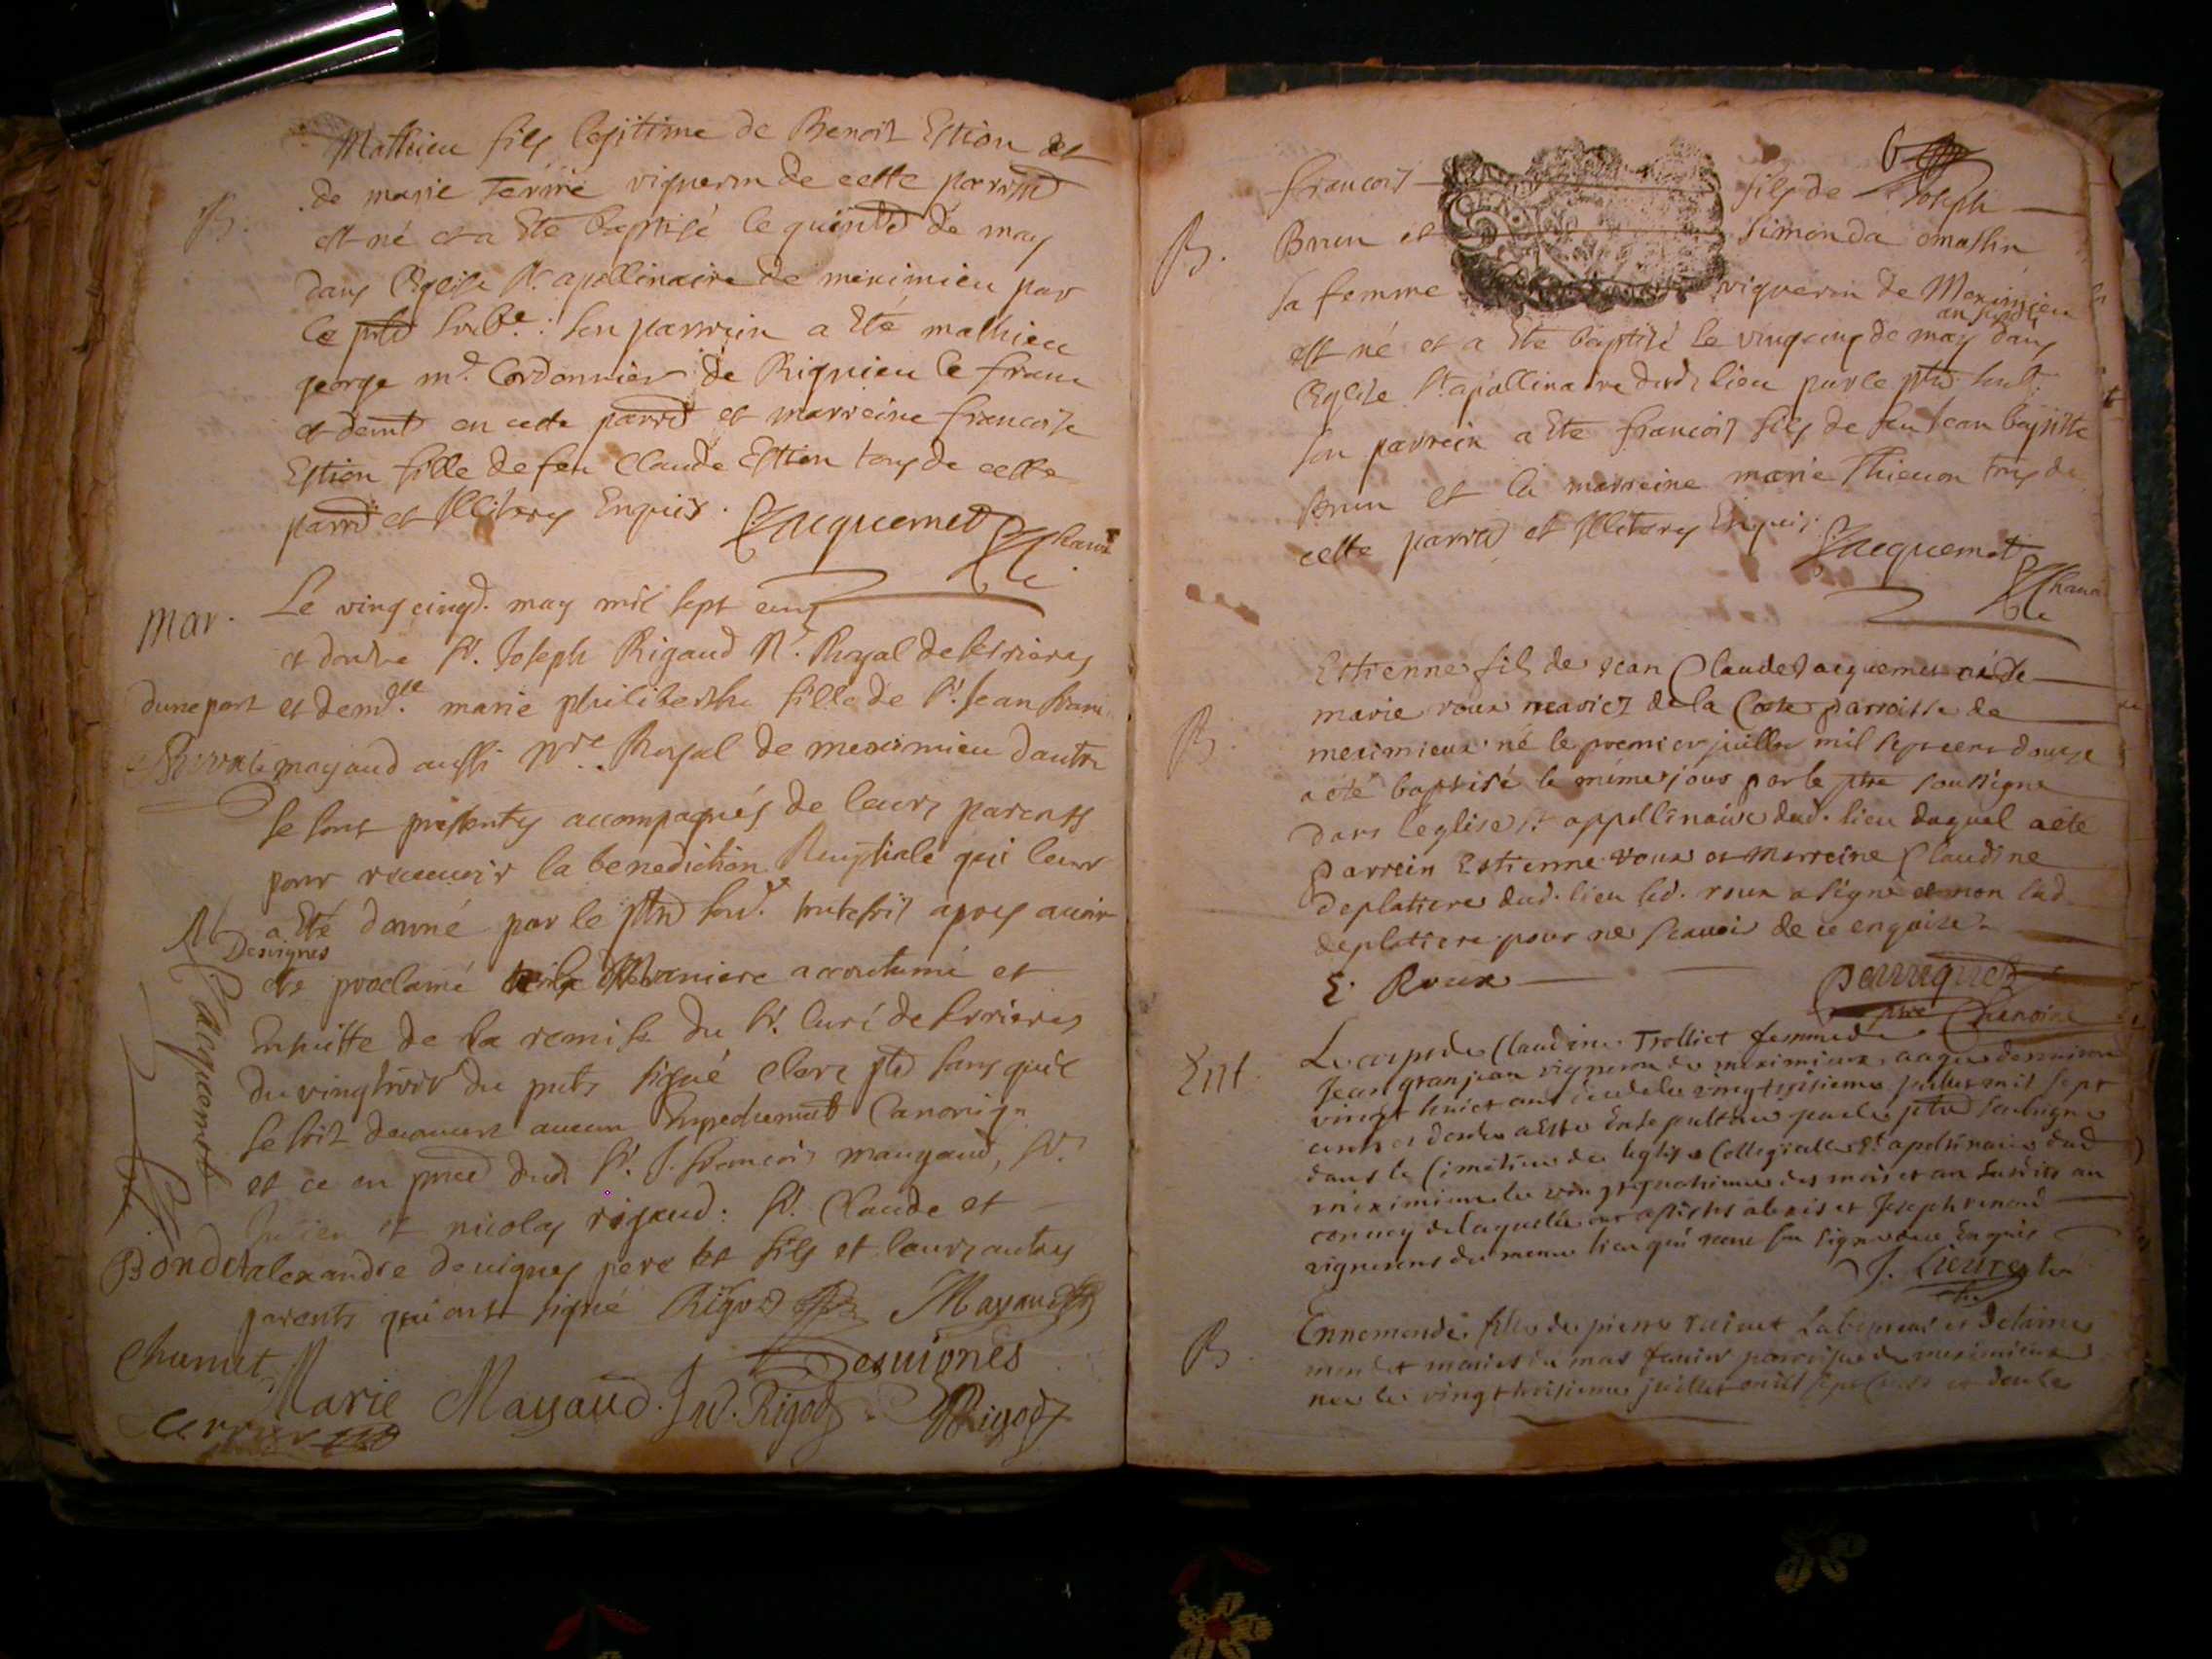 Mathieu fils legitime de Benoit Estion et
de marie Terme vigneron de cette parroisse
B.
est né et a Eté baptisé le quinze de may
dans l'Eglise St. apollinaire de meximieu par
le ptre soubs.é : son parrein a Eté mathieu
george md. Cordonnier de Rignieu le franc
et demt en cette parrs et marreine francoise
Estion fille de feu Claude Estion tous de cette
parrs et Illiteres Enquis. Jacquemet chan.
Mar.
Le vingcinqe. may mil sept cens
et douze Sr. Joseph Rigaud Nr. Royal de
dune part et demlle. marie philiberthe fille de Sr. Jean
mayaud aussi Nre. Royal de meximieu d'autre
se sont presentes accompagnés de leurs parents
pour recevoir la benediction Nuptiale qui leur
a Eté donné par le ptre sous. toutefois apres avoir
Desvignes
ete proclamé maniere accoutumé et
Ensuitte de la remise du Sr. Curé de
du vingtrois du puts signé clerc ptre sans quil
se soit decouvert aucun Empechement Canoniq
Jacquemet
et ce en prece dud Sr. J. francois mayaud, Sr.
et nicolas rigaud. Sr. Claude et
Bondet alexandre devignes pere et fils et leurs autres
parents qui ont signé Rigod Mayaud
Chamet Desvignes
Marie Mayaud. Rigod. Rigod
6
francois fils de Joseph
B. Brun et Simonda omastin
sa femme vigneron de Meximieu
an susdt
est né et a Ete baptisé le vingcinq de may dans
l'Eglise St apollinaire dudt lieu par le ptre soubs.
son parrein a Ete francois fils de feu Jean baptiste
brun et la marreine marie Thienon tous de
cette parrs et Illiteres Enquis.
Jacquemet
chan.
Estienne fils de Jean Claude Jacquemet et de
marie roux mariez de la Coste parroisse de
B.
meximieux né le premier juillet mil sept cens douze
a été baptisé le même jour par le ptre soussigne
dans l'eglise St appollinaire dud. lieu duquel a été
parrein Estienne roux et Marreine Claudine
deplatiere dud. lieu led. roux a signé et non lad.
deplatiere pour ne scavoir de ce enquise.
E. Roux Perruquet
ptre Chanoine
Ent.
Le corps de Claudine Trolliet femme de
Jean granjean vigneron de meximieux, aagée denviron
vingt huict ans decedée vingtroisieme juillet mil sept
cents et douze a Esté Ensepulturée par le ptre soubsigné
dans le Cimetiere de l'eglise Collegialle St apolinaire dud
meximieux le vingtquatrieme des mois et an susdits au
convoy delaquelle ont assistés alexis et Joseph renoud
vignerons du meme lieu qui nont sceu signer de ce Enquis
J. Lieurestre
B.
Ennemonde fille de pierre rainet Laboureur et
mariés du mas fevier parroisse de meximieux
née le vingtroisieme juillet mil sept cents et douze